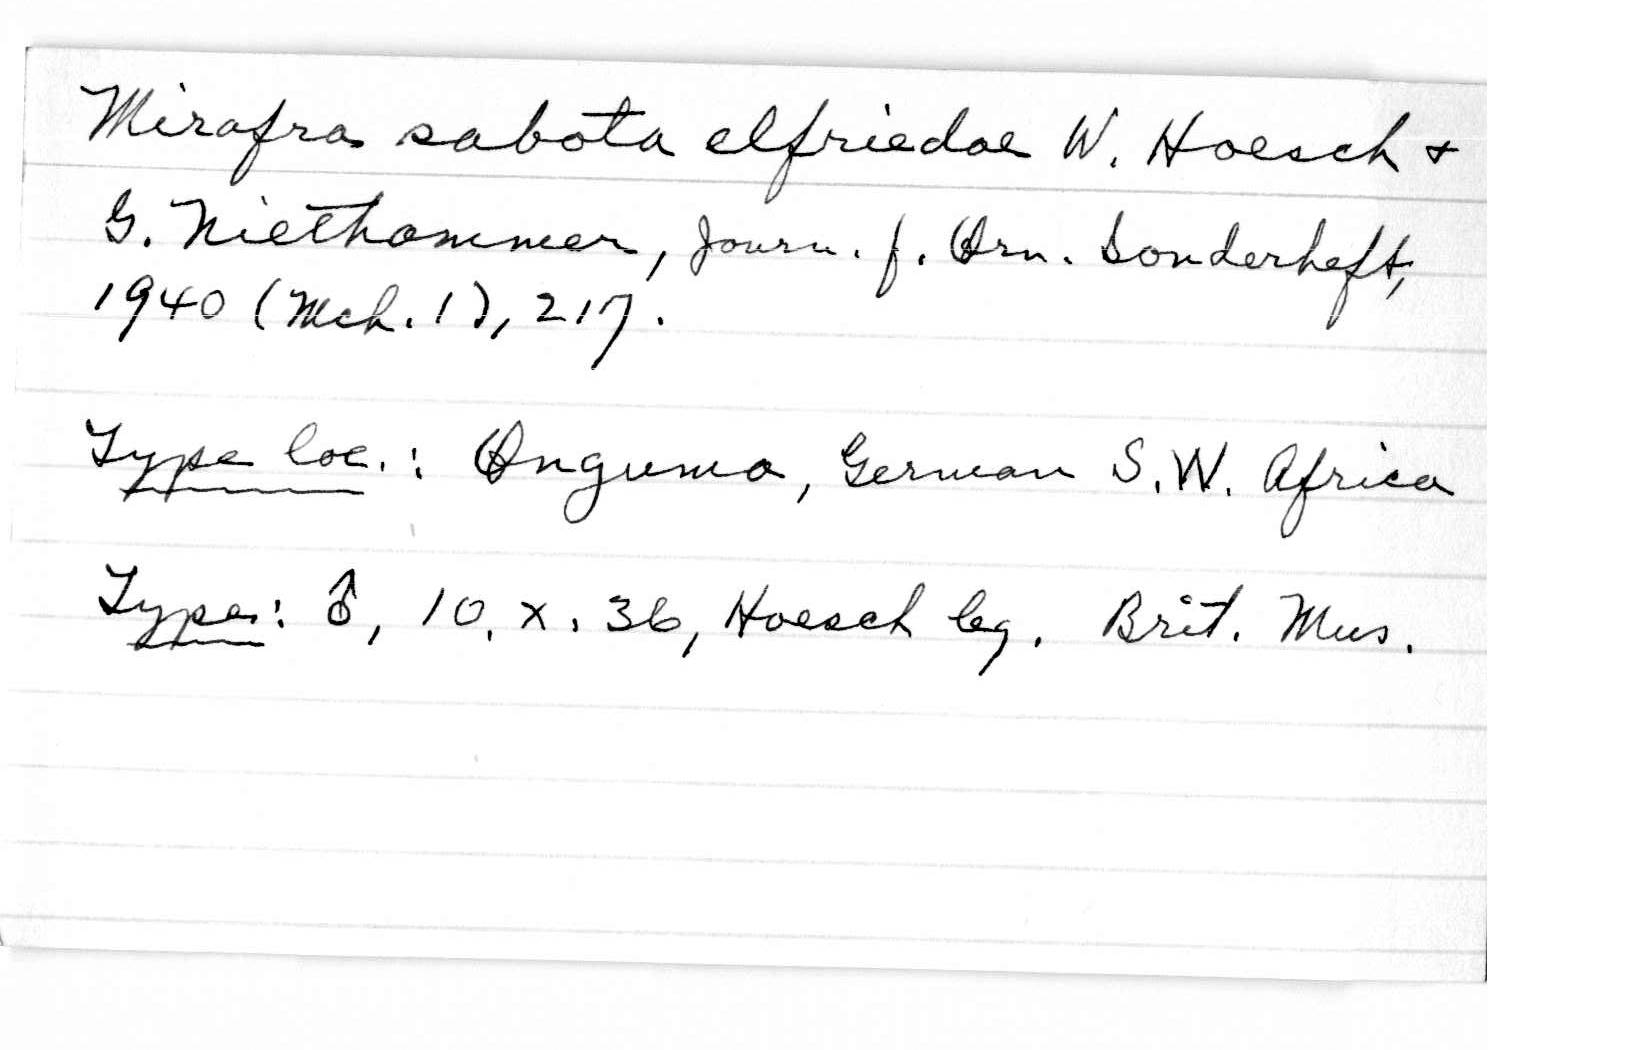 Mirafra sabota elfriedae W. Hoesch &
G. Niethammer, Journ. f. Orn. Sonderheft,
1940 (Mch. 1), 217.
Type loc.: Onguma, German S.W. Africa
Type: ♂, 10.x.36, Hoesch leg. Brit. Mus.